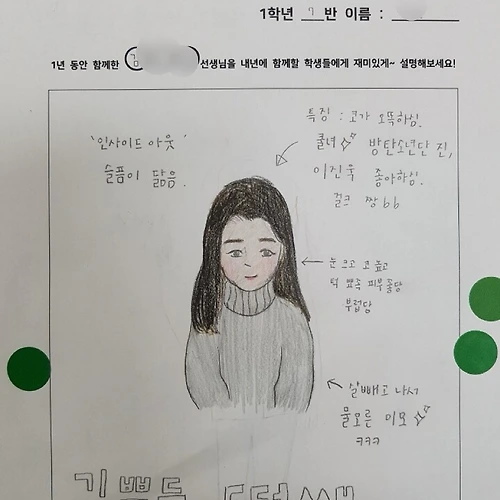 1학년 7 반 이름 :
1년 동안 함께한 (김 )선생님을 내년에 함께할 학생들에게 재미있게~ 설명해보세요!
'인사이드 아웃'
슬픔이 닮음.
특징 : 코가 오똑하심.
쿨녀 방탄소년단 진,
이진욱 좋아하심.
걸크 짱 bb
눈 크고 코 높고
턱 뾰족 피부 꿀광
부럽당
살빼고 나서
물오른 미모
ㅋㅋㅋ
기쁘든